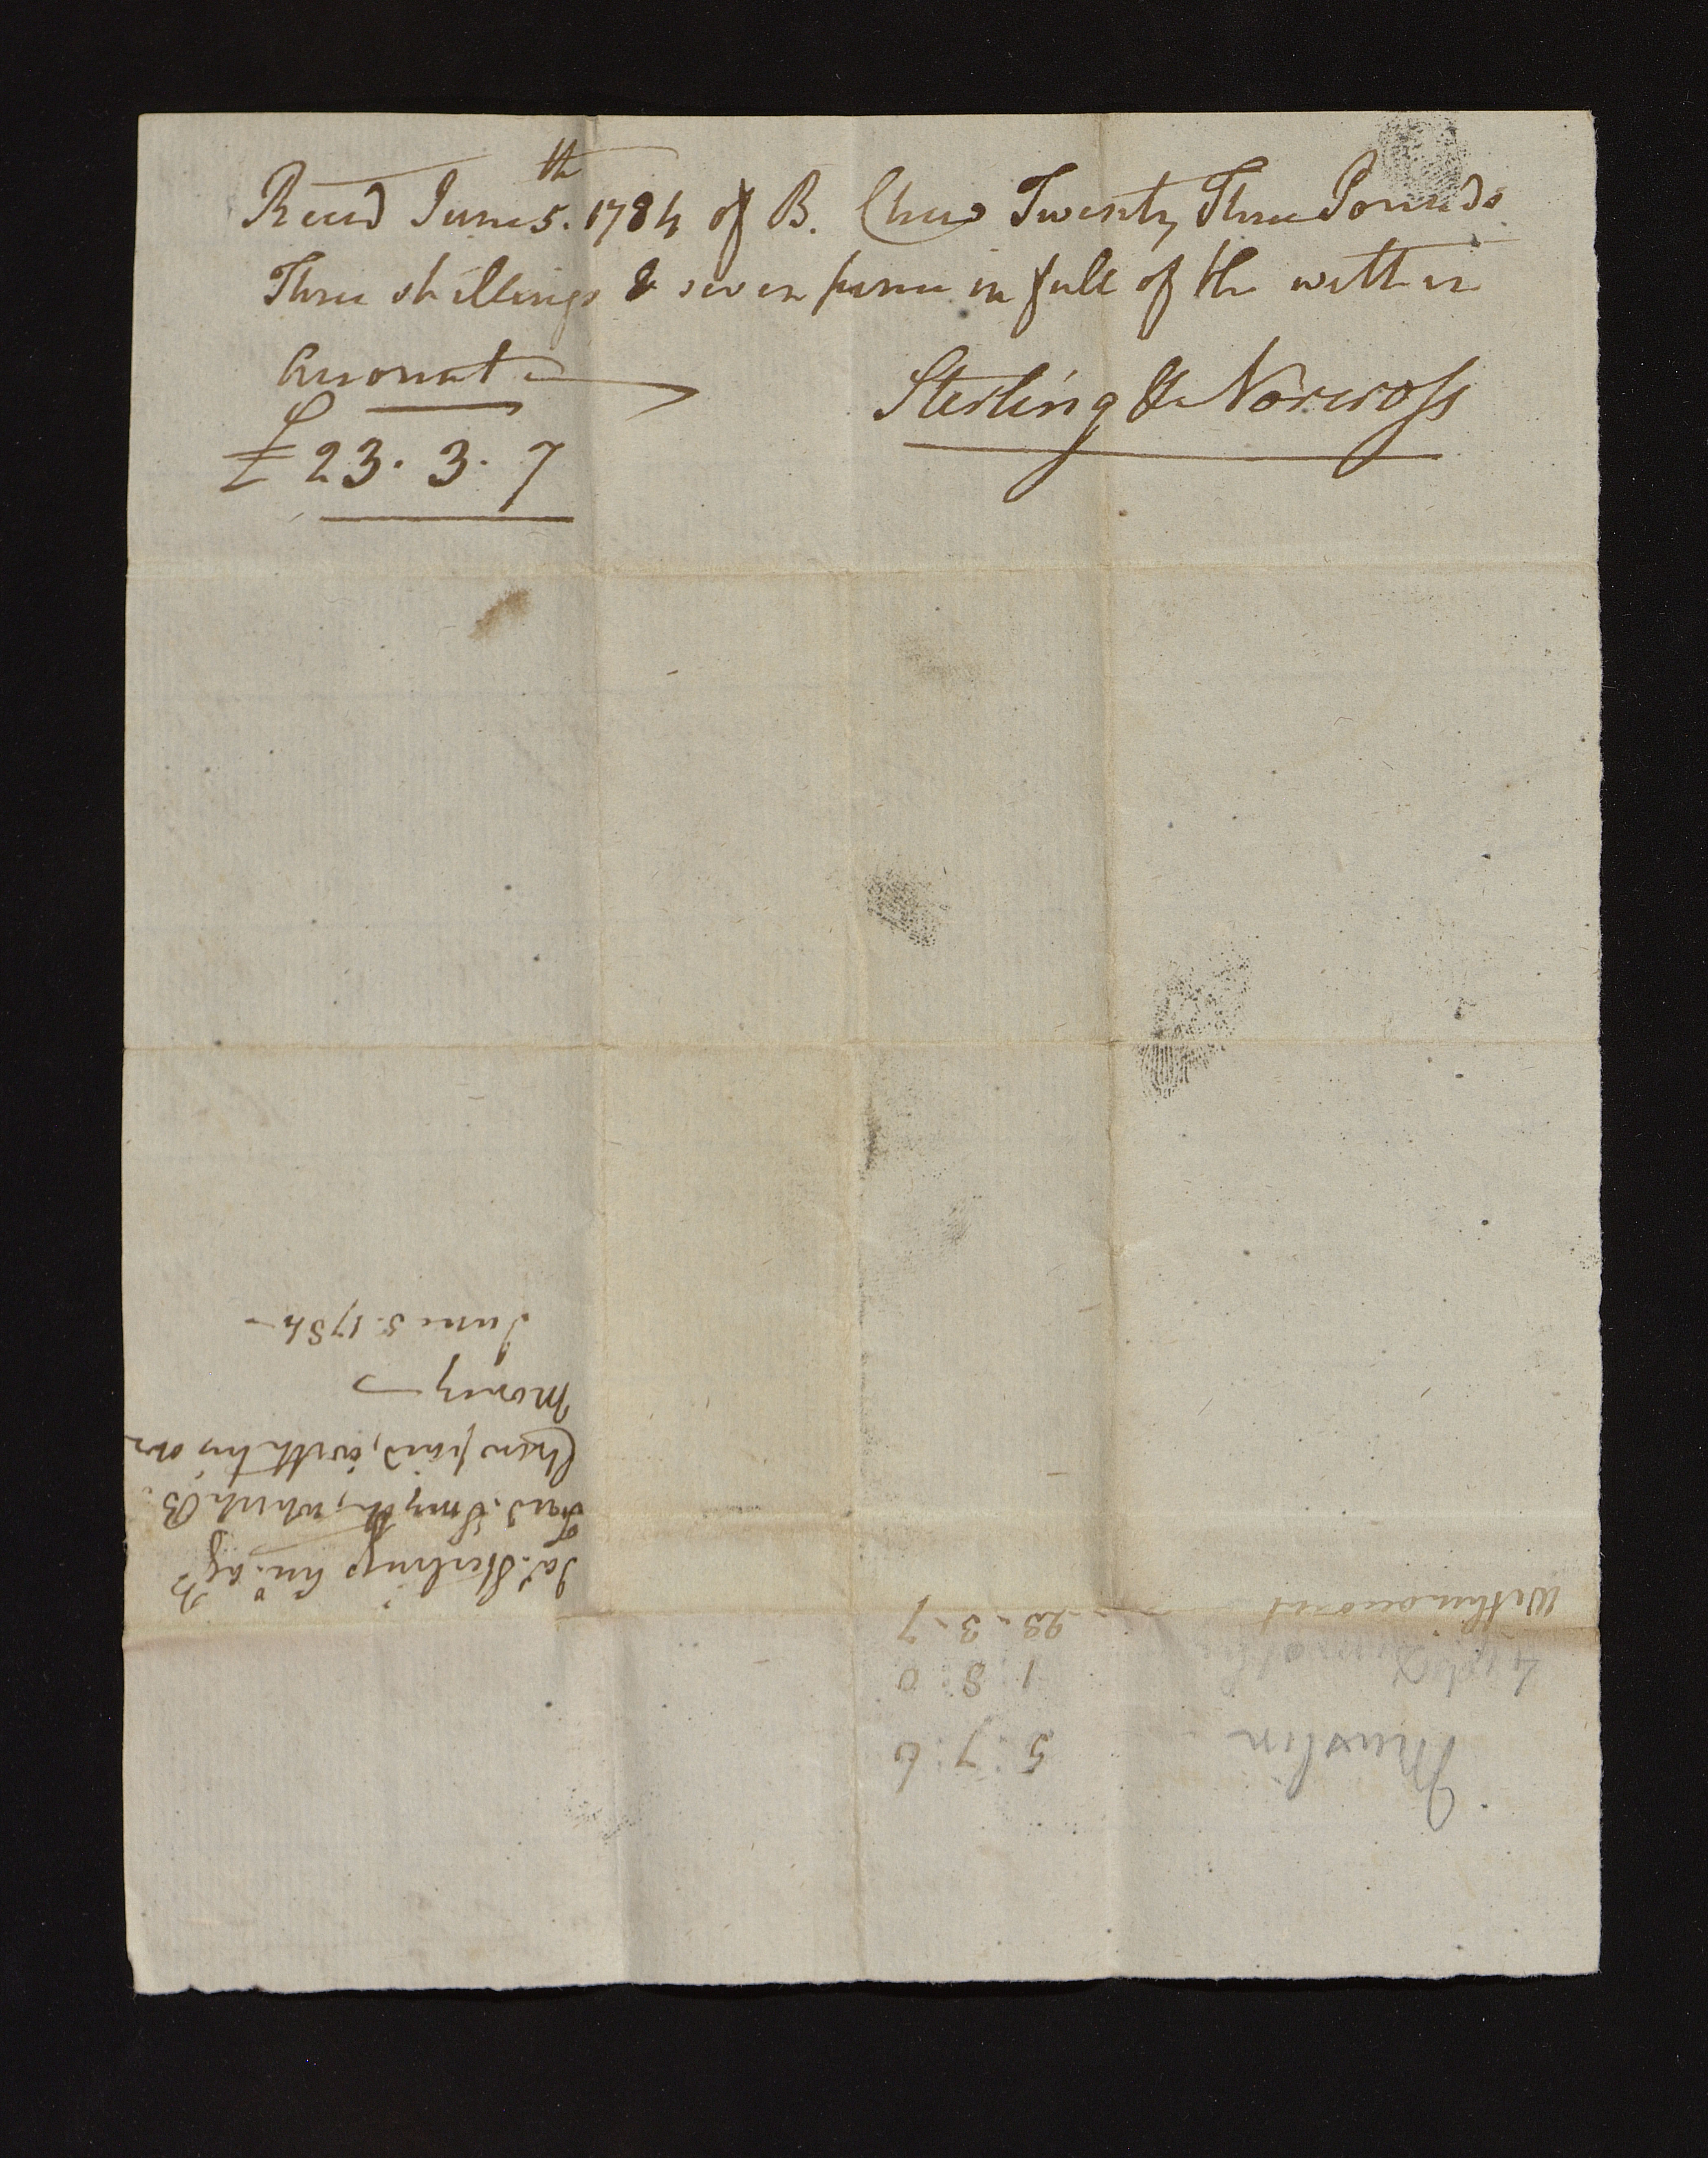 Recd June 5.th 1784 of B. Chew Twenty Three Pounds
Three shillings & seven pence in full of the within
Account
£ 23. 3. 7
Sterling & Norcross
Jas. Sterlings Acco. agt.
Fred. Smyth, which B.
Chew paid, with his own
Money
June 5. 1784
Within account 23-3-7
1 8 0
Muslin 5:7:6